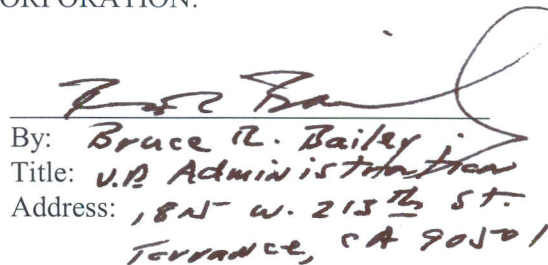 ORPORATION:
By: Bruce R. Bailey
Title: V.P. Administration
Address: W. 213th St.
Torrance, CA 90501